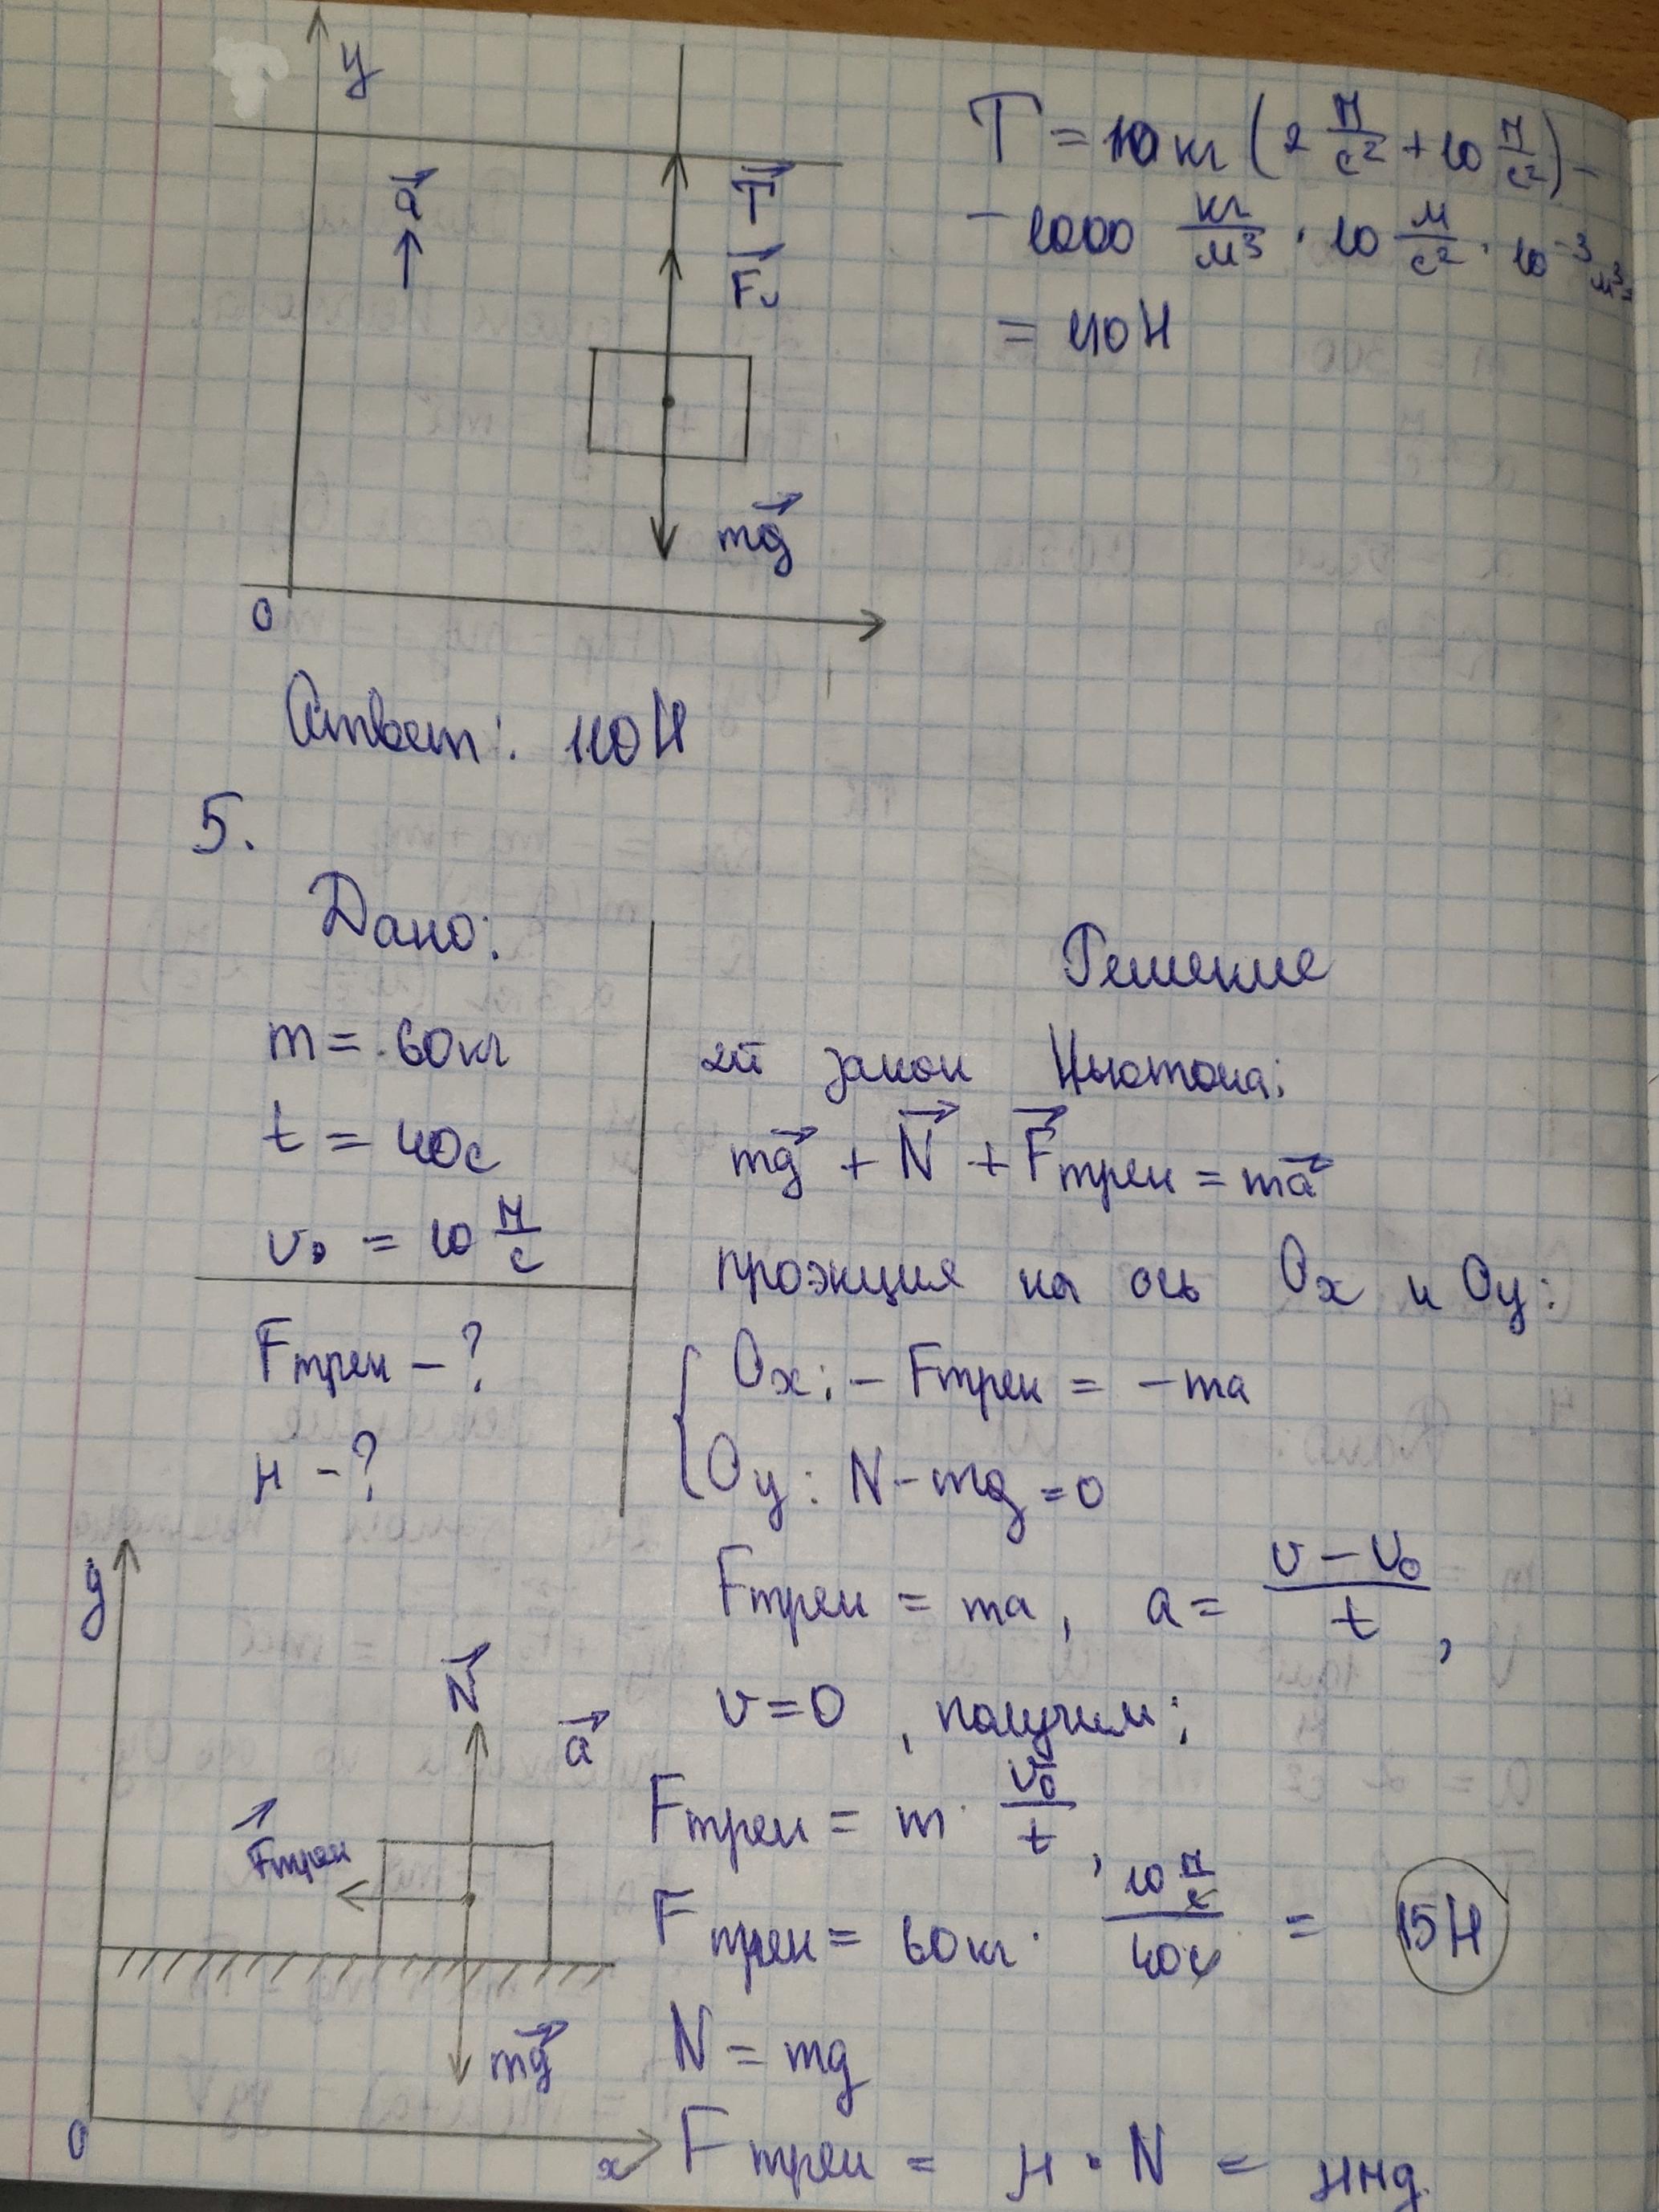 y
a⃗
T⃗
F⃗
mg⃗
0
T = 10 кг (2 м/с² + 10 м/с²) –
– 1000 кг/м³ · 10 м/с² · 10⁻³ м³ =
= 110 Н
Ответ: 110 Н
5.
Дано:
m = 60 кг
t = 40 с
υ₀ = 10 м/с
Fтрен – ?
μ – ?
Решение
2й закон Ньютона:
mg⃗ + N⃗ + F⃗трен = ma⃗
проэкция на ось Ox и Oy:
Ox: – Fтрен = – ma
Oy: N – mg = 0
Fтрен = ma, a = (υ – υ₀)/t,
υ = 0, получим:
Fтрен = m · υ₀/t,
Fтрен = 60 кг · (10 м/с)/(40 с) = 15 Н
N = mg
Fтрен = μ · N = μmg
y
N⃗
a⃗
F⃗трен
mg⃗
0
x